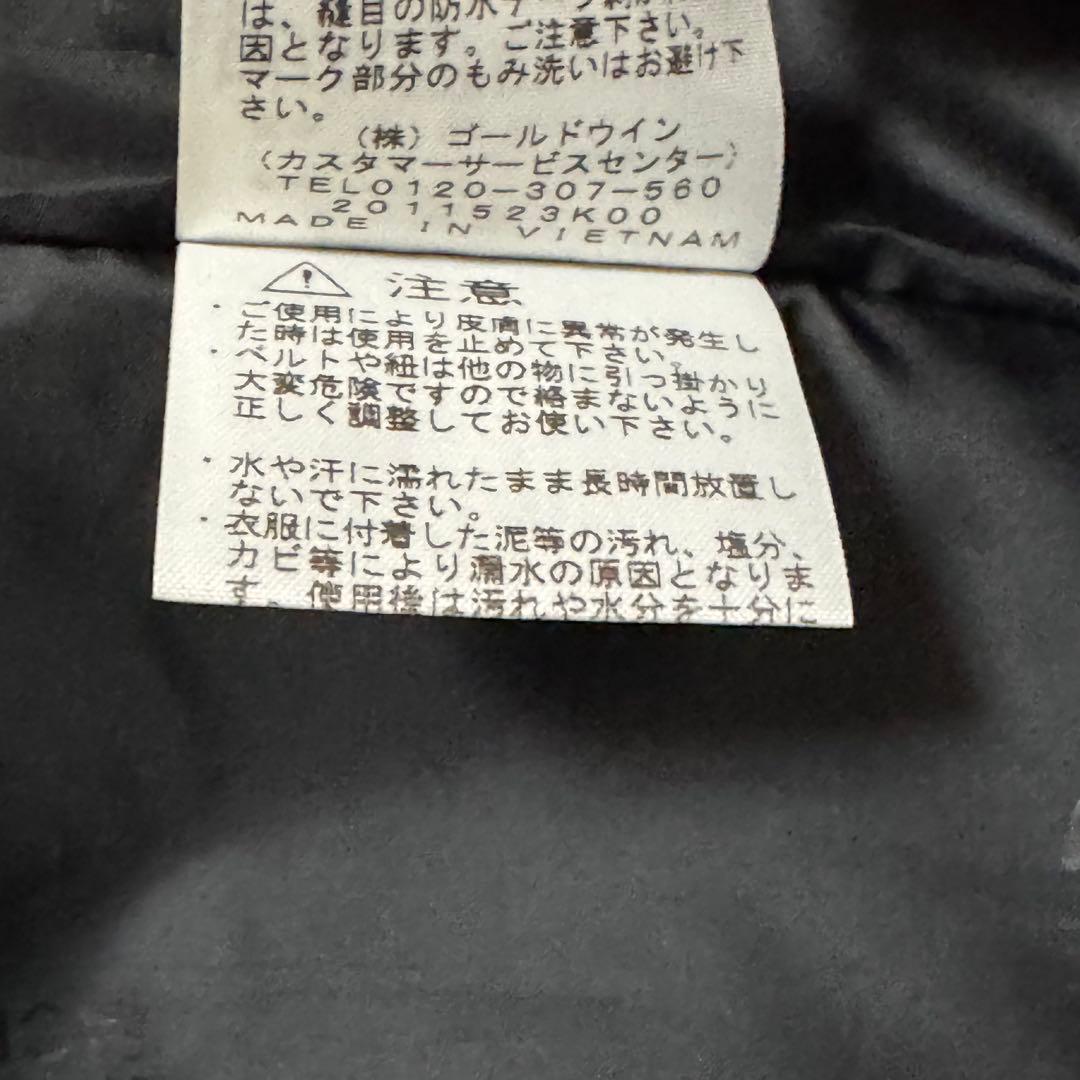 は、縫目の防水テープ剥がれ
因となります。ご注意下さい。
マーク部分のもみ洗いはお避け下
さい。
(株)ゴールドウイン
(カスタマーサービスセンター)
TEL0120-307-560
2011523K00
MADE IN VIETNAM
注意
・ご使用により皮膚に異常が発生し
た時は使用を止めて下さい。
・ベルトや紐は他の物に引っ掛かり
大変危険ですので絡まないように
正しく調整してお使い下さい。
・水や汗に濡れたまま長時間放置し
ないで下さい。
・衣服に付着した泥等の汚れ、塩分、
カビ等により漏水の原因となりま
す。使用後は汚れや水分を十分に